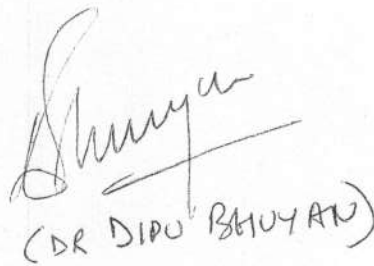 Bhuyan
(DR DIPU BHUYAN)